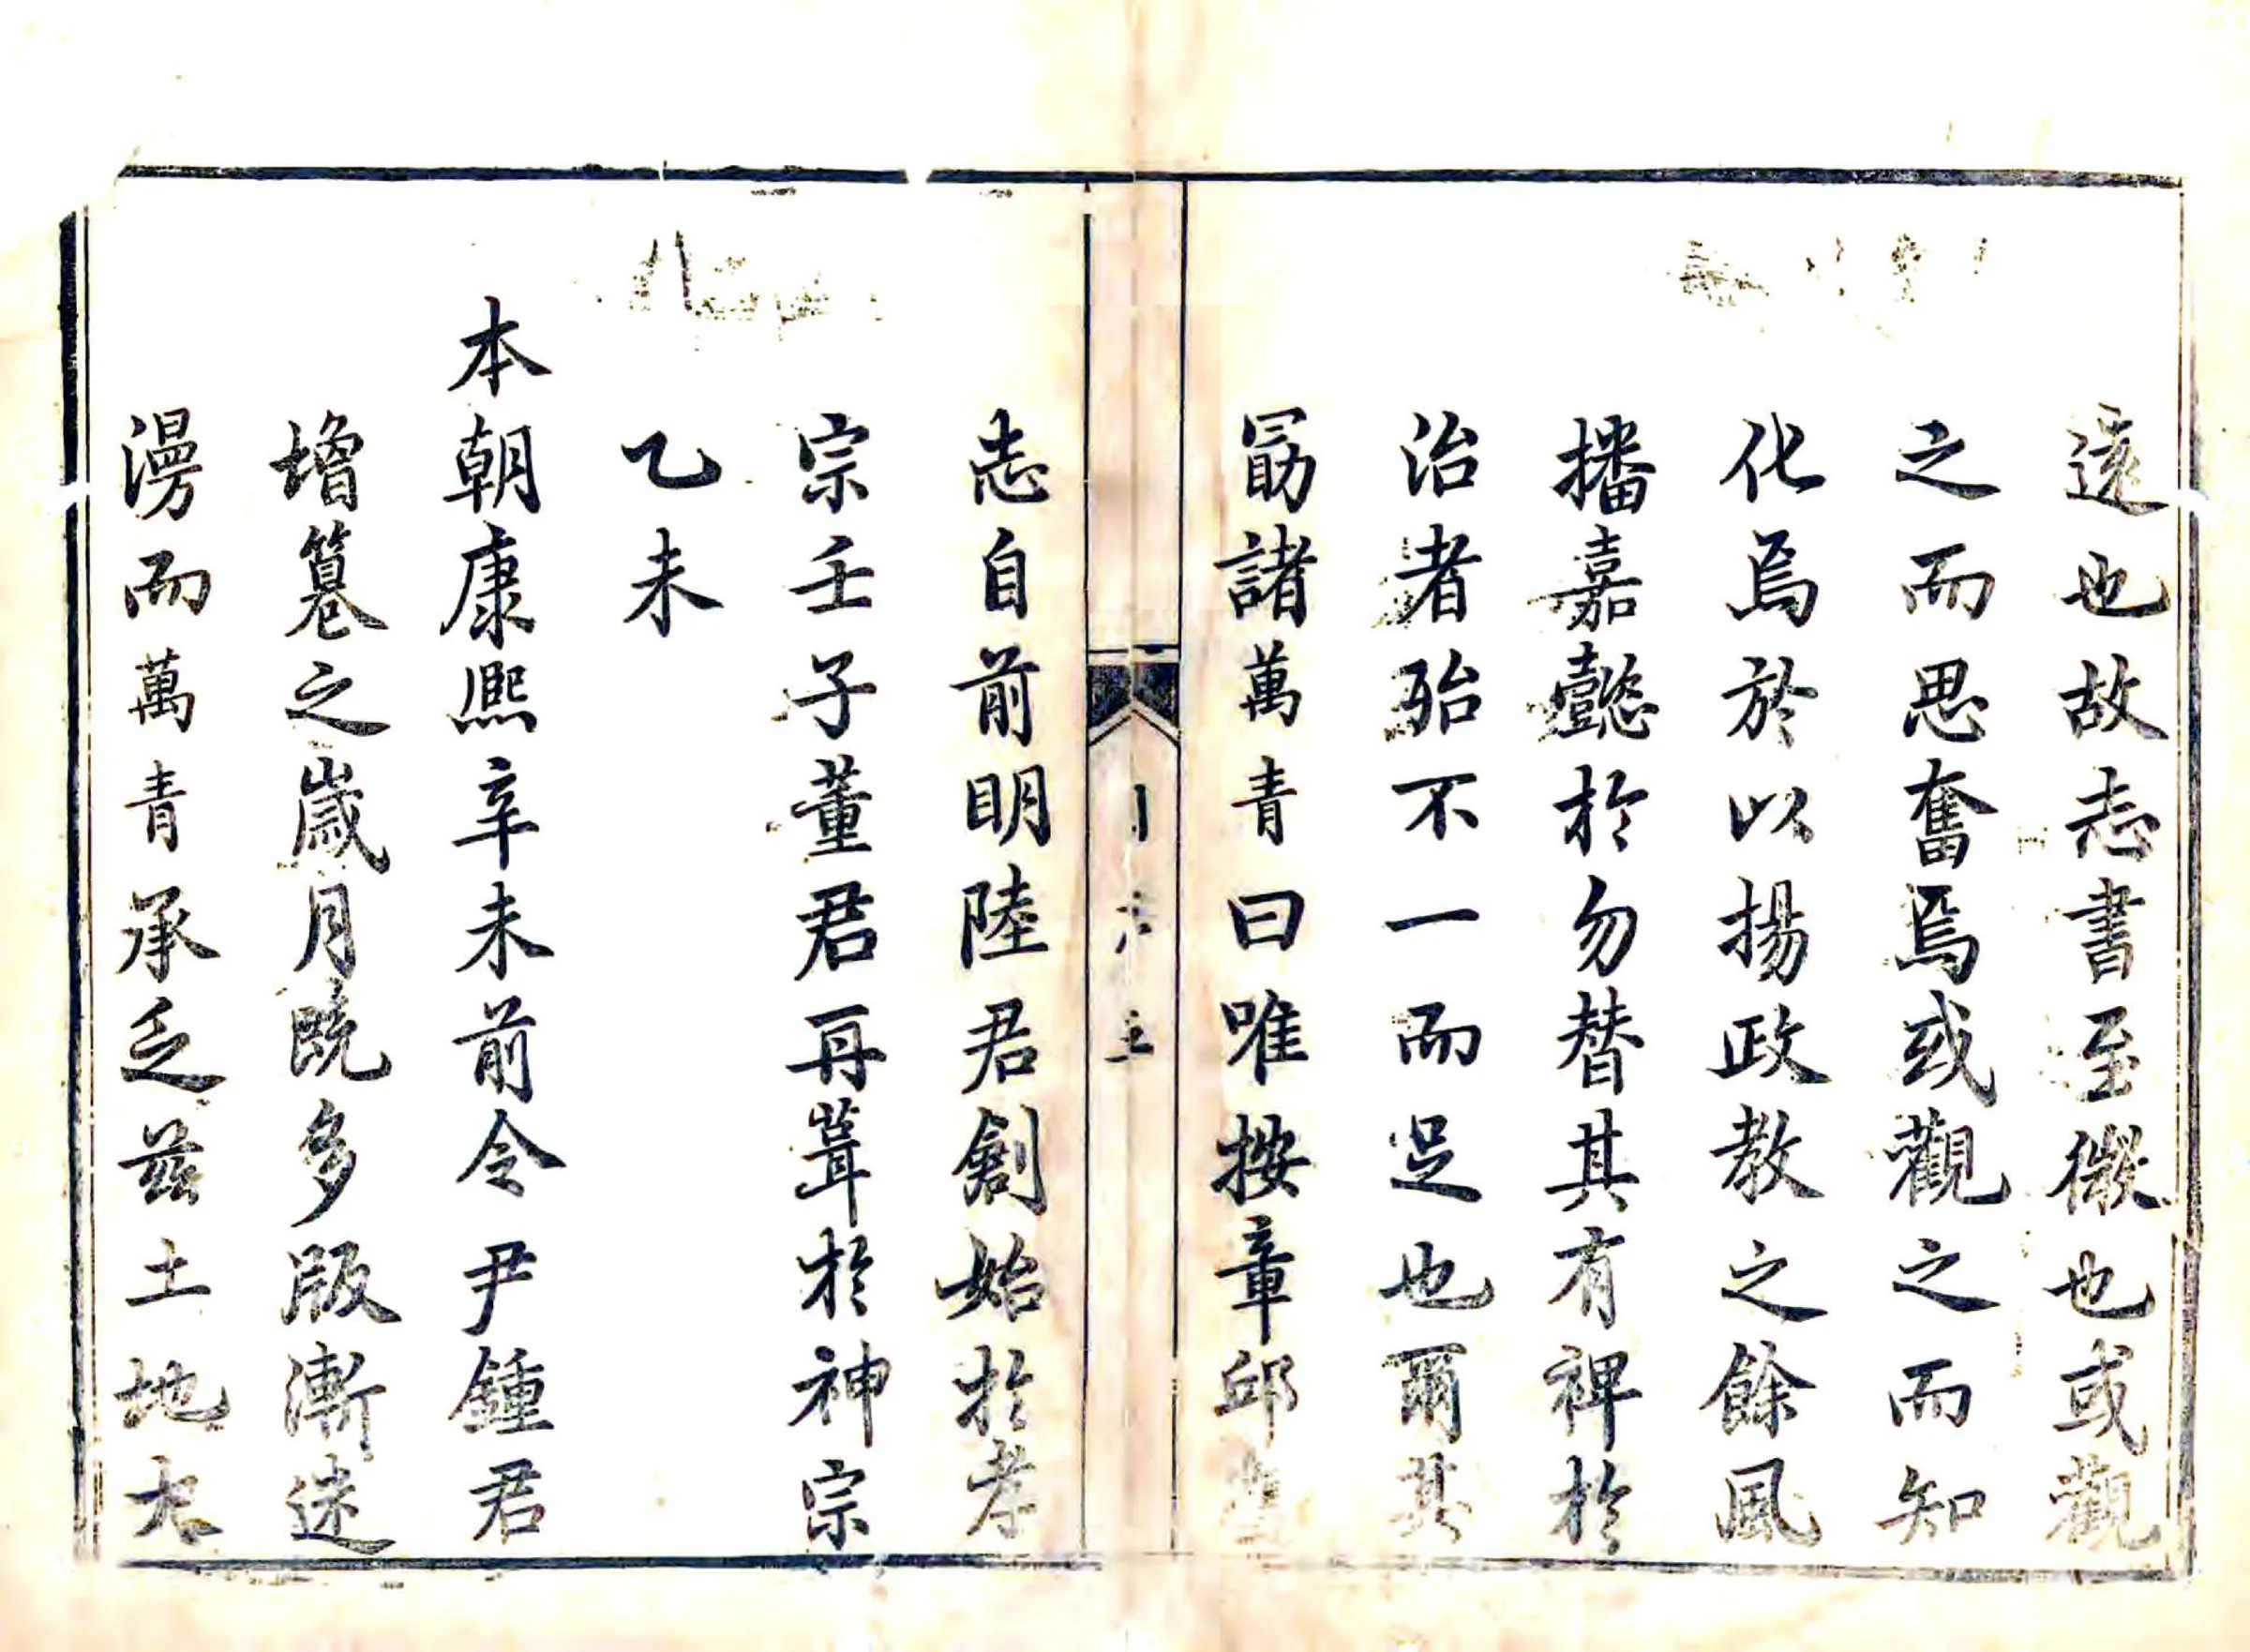 遠也故志書至微也或觀
之而思奮焉或觀之而知
化焉於以揚政教之餘風
播嘉懿於勿替其有裨於
治者殆不一而足也爾其
勗諸萬青曰唯按章邱
志自前明陸君創始於孝
宗壬子董君再葺於神宗
乙未
本朝康熙辛未前令尹鍾君
增纂之歲月旣多版漸迷
漫而萬青承乏兹土地大